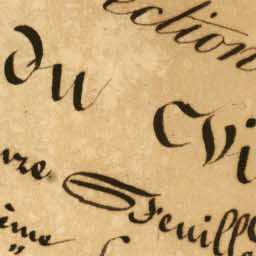 ection
du Vi
vre Feuill
ème